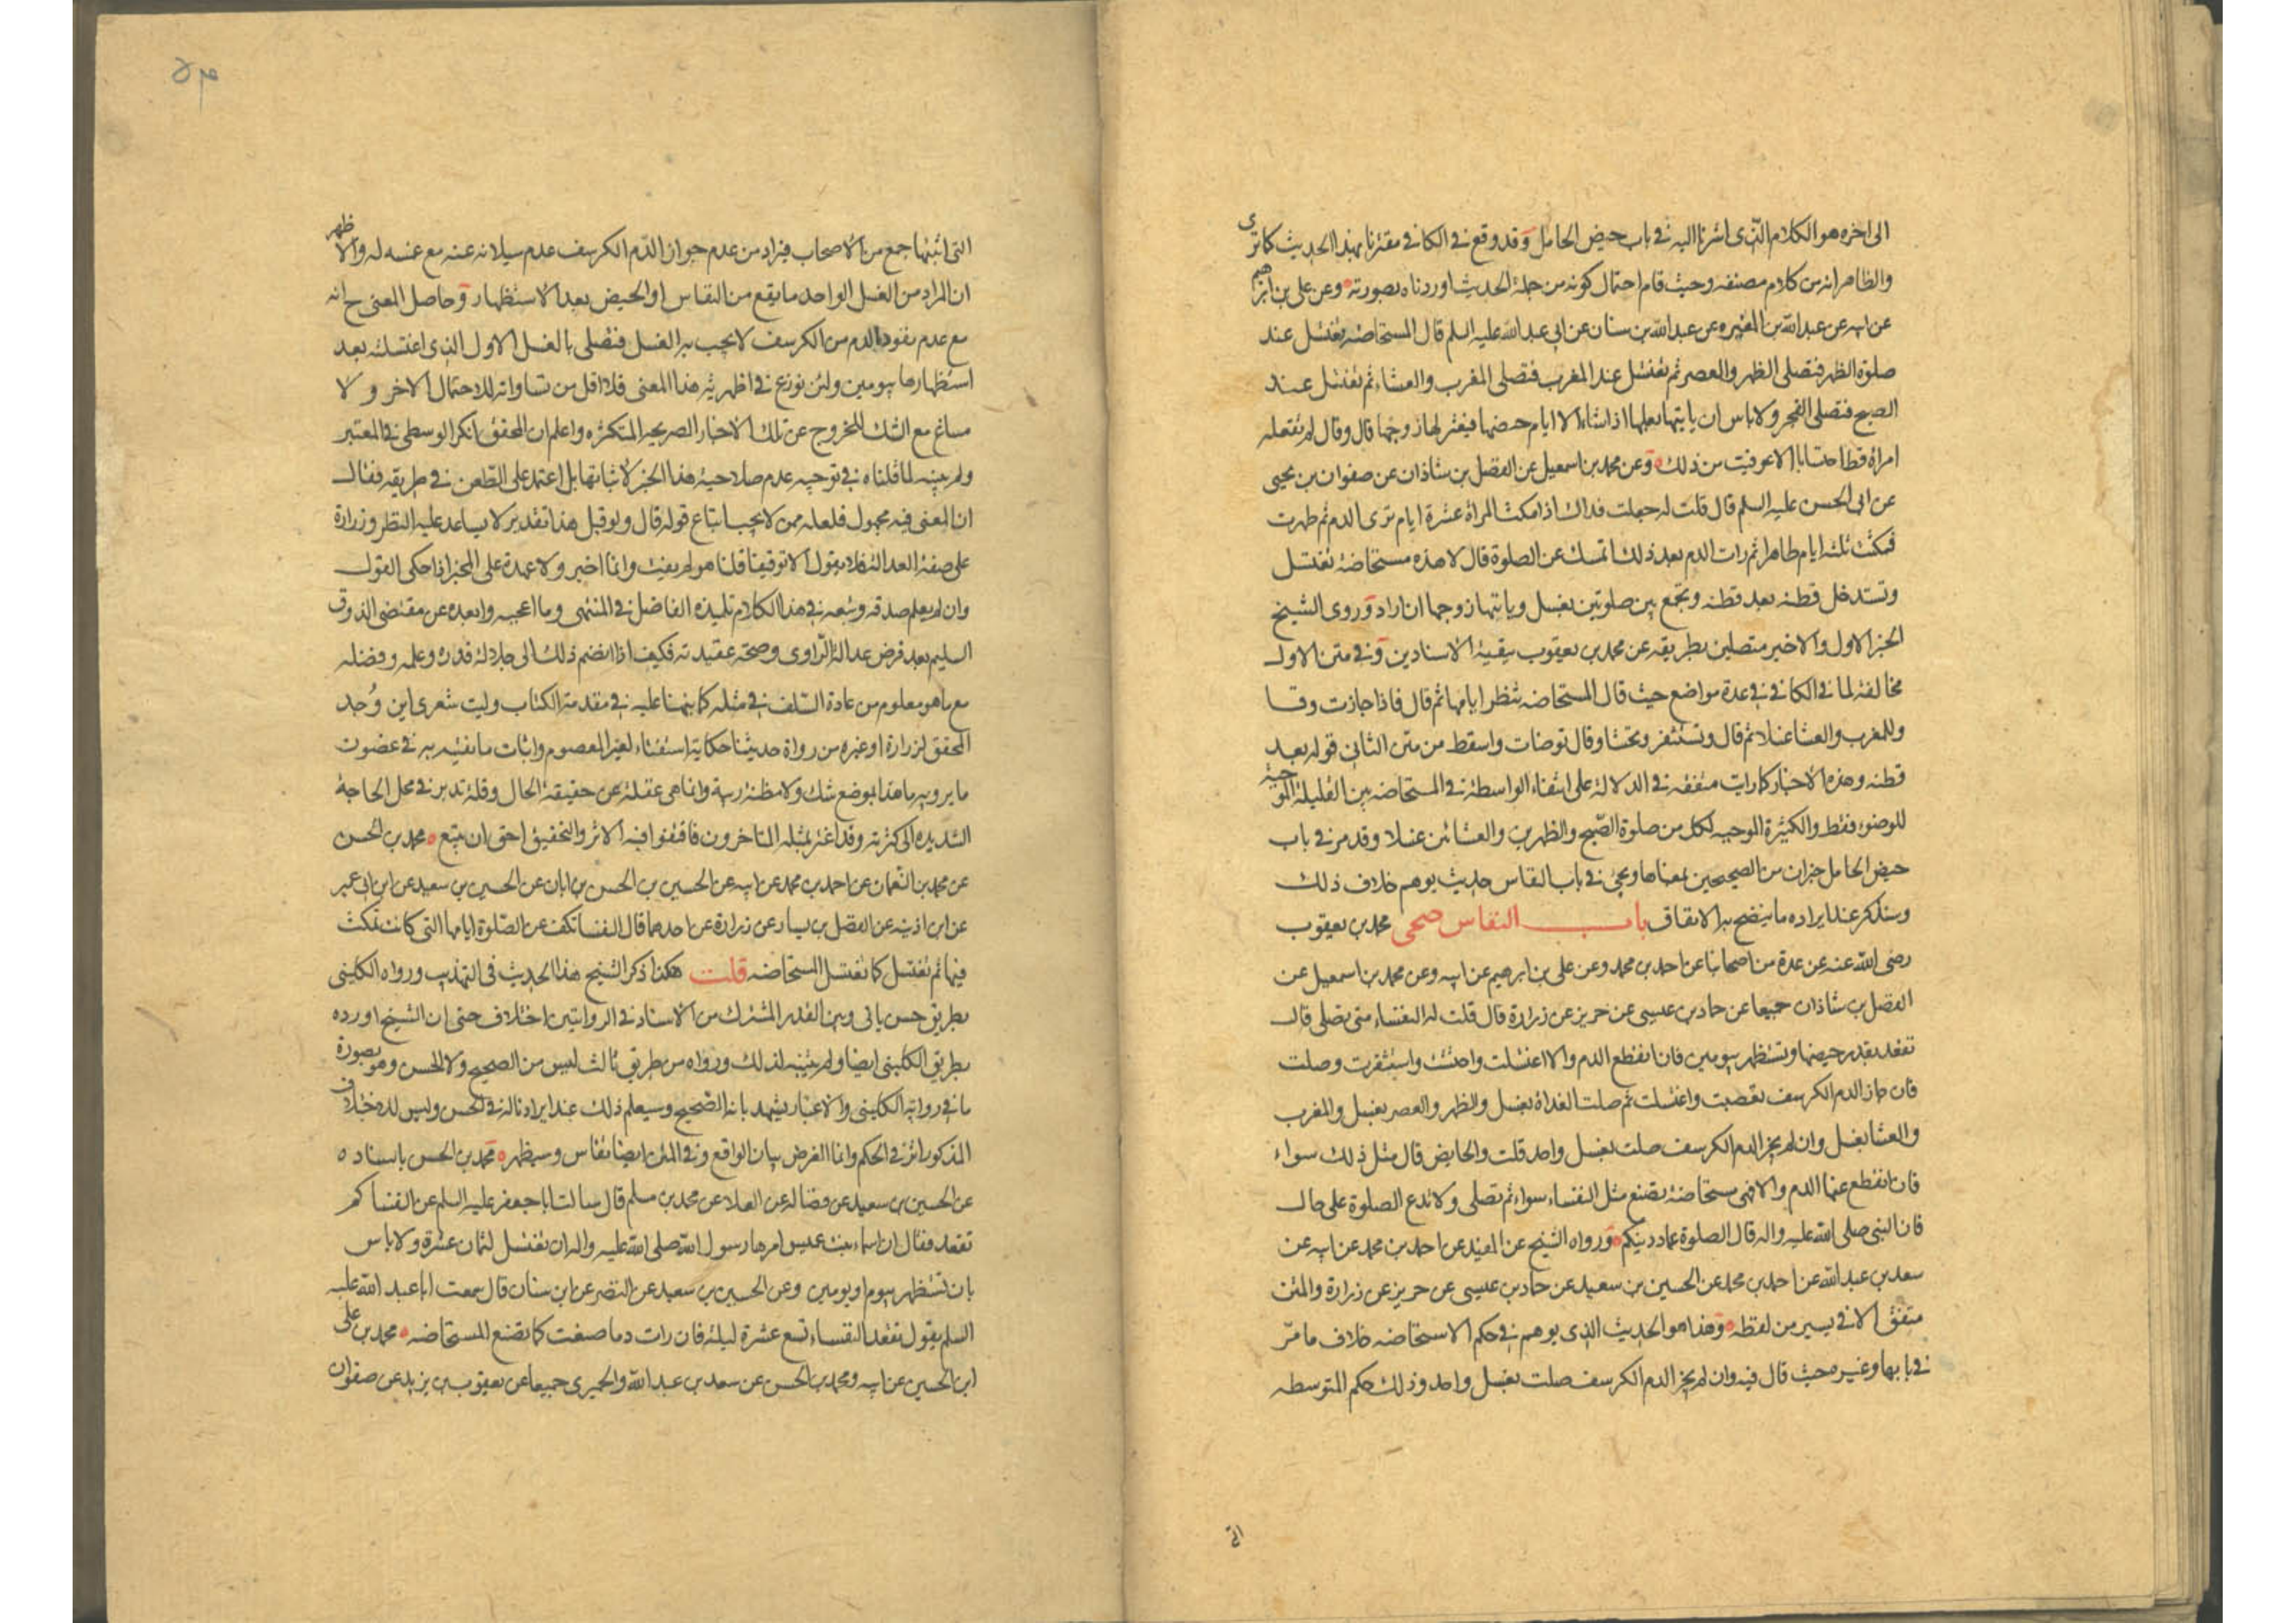 الى اخره هو الكلام الذى اشرنا اليه فى باب حيض الحامل وقد وقع فى الكافى مقترنا بهذا الحديث كما ترى
والظاهر انه من كلام مصنفه وحيث قام احتمال كونه من جملة الحديث اوردناه بصورته وعن على بن ابرهيم
عن ابيه عن عبدالله بن المغيره عن عبدالله بن سنان عن ابى عبدالله عليه السلم قال المستحاضه تغتسل عند
صلوة الظهر فتصلى الظهر والعصر ثم تغتسل عند المغرب فتصلى المغرب والعشاء ثم تغتسل عند
الصبح فتصلى الفجر ولا باس ان ياتيها بعلها اذا شاء الا ايام حيضها فيعتزلها زوجها قال وقال لم تفعله
امراة قط احتسابا الا عوفيت من ذلك وعن محمد بن اسمعيل عن الفضل بن شاذان عن صفوان بن يحيى
عن ابى الحسن عليه السلم قال قلت له جعلت فداك اذا مكثت المراة عشرة ايام ترى الدم ثم طهرت
فمكثت ثلثة ايام طاهرا ثم رات الدم بعد ذلك اتمسك عن الصلوة قال لا هذه مستحاضة تغتسل
وتستدخل قطنه بعد قطنه وتجمع بين صلوتين بغسل وياتيها زوجها ان اراد وروى الشيخ
الخبر الاول والاخير متصلين بطريقه عن محمد بن يعقوب ببقية الاسنادين وفى متن الاول
مخالفة لما فى الكافى فى عدة مواضع حيث قال المستحاضه تنظر ايامها ثم قال فاذا جازت وقا
وللمغرب والعشا غسلا ثم قال وتستثفر وتحتشا وقال توضات واسقط من متن الثانى قوله بعد
قطنه وهذه الاخبار كما رايت متفقه فى الدلالة على انتفاء الواسطة فى المستحاضه بين القليلة الموجبة
للوضوء فقط والكثيرة الموجبه لكل من صلوة الصبح والظهرين والعشائين غسلا وقد مر فى باب
حيض الحامل خبران من الصحيحين بمعناها ويجئ فى باب النفاس حديث يوهم خلاف ذلك
وسنذكر عند ايراده ما يتضح به الاتفاق باب النفاس صحى محمد بن يعقوب
رضى الله عنه عن عدة من اصحابنا عن احمد بن محمد وعن على بن ابرهيم عن ابيه وعن محمد بن اسمعيل عن
الفضل بن شاذان جميعا عن حماد بن عيسى عن حريز عن زرارة قال قلت له النفساء متى تصلى قال
تقعد بقدر حيضها وتستظهر بيومين فان انقطع الدم والا اغتسلت واحتشت واستثفرت وصلت
فان جاز الدم الكرسف تعصبت واغتسلت ثم صلت الغداة بغسل والظهر والعصر بغسل والمغرب
والعشا بغسل وان لم يجز الدم الكرسف صلت بغسل واحد قلت والحايض قال مثل ذلك سواء
فان انقطع عنها الدم والا فهى مستحاضة تصنع مثل النفساء سواء ثم تصلى ولا تدع الصلوة على حال
فان النبى صلى الله عليه واله قال الصلوة عماد دينكم ورواه الشيخ عن المفيد عن احمد بن محمد عن ابيه عن
سعد بن عبدالله عن احمد بن محمد عن الحسين بن سعيد عن حماد بن عيسى عن حريز عن زرارة والمتن
متفق الا فى يسير من لفظه وهذا هو الحديث الذى يوهم فى حكم الاستحاضه خلاف ما مرّ
فى بابها وغيره حيث قال فيه وان لم يجز الدم الكرسف صلت بغسل واحد وذلك حكم المتوسطه
التى
التى اثبتها جمع من الاصحاب فيراد من عدم جواز الدّم الكرسف عدم سيلانه عنه مع غمسه له والاظهر
ان المراد من الغسل الواحد ما يقع من النفاس او الحيض بعد الاستظهار وحاصل المعنى ح انه
مع عدم نفوذ الدم من الكرسف لا يجب به الغسل فتصلى بالغسل الاول الذى اغتسلته بعد
استظهارها بيومين ولئن نوزع فى اظهرية هذا المعنى فلا اقل من تساواته للاحتمال الاخر ولا
مساغ مع الشك للخروج عن تلك الاخبار الصريحه المتكثره واعلم ان المحقق انكر الوسطى فى المعتبر
ولم يتنبه لما قلناه فى توجيه عدم صلاحية هذا الخبر لاثباتها بل اعتمد على الطعن فى طريقه فقال
ان المعنى فيه مجهول فلعله ممن لا يجب اتباع قوله قال ولو قيل هذا تقدير لا يساعد عليه النظر وزرارة
على صفة العدالة فلا يقول الا توقيفا قلنا هو لم يفت وانما اخبر ولا عهدة على المخبر اذا حكى القول
وان لم يعلم صدقه وتبعه فى هذا الكلام تلميذه الفاضل فى المنتهى وما اعجبه وابعده عن مقتضى الذوق
السليم بعد فرض عدالة الراوى وصحة عقيدته فكيف اذا انضم ذلك الى جلالة قدره وعلمه وفضله
مع ما هو معلوم من عادة السّلف فى مثله كما نبهنا عليه فى مقدمة الكتاب وليت شعرى اين وُجد
المحقق لزرارة او غيره من رواة حديثنا حكاية استفتاء لغير المعصوم واثبات ما يفتيه به فى غضون
ما يرويه ما هذا بموضع شك ولا مظنة ريبة وانما هى غفلة عن حقيقة الحال وقلة تدبر فى محل الحاجة
الشديده الى كثرته وقد اغتر بمثله المتاخرون فاقتفوا فيه الاثر والتحقيق احق ان يتبع محمد بن الحسن
عن محمد بن النعمان عن احمد بن محمد عن ابيه عن الحسين بن الحسن بن ابان عن الحسين بن سعيد عن ابن ابى عمير
عن ابن اذينه عن الفضيل بن يسار عن زرارة عن احدهما قال النفسا تكف عن الصّلوة ايامها التى كانت تمكث
فيها ثم تغتسل كما تغتسل المستحاضه قلت هكذا ذكر الشيخ هذا الحديث فى التهذيب ورواه الكلينى
بطريق حسن ياتى وبين القدر المشترك من الاسناد فى الروايتين اختلاف حتى ان الشيخ اورده
بطريق الكلينى ايضا ولم يتنبه لذلك ورواه من طريق ثالث ليس من الصحيح ولا الحسن وهو بصورة
ما فى رواية الكلينى والاعتبار يشهد بانه الصّحيح وسيعلم ذلك عند ايرادنا له فى الحسن وليس للاختلاف
المذكور اثر فى الحكم وانما الغرض بيان الواقع وفى المتن ايضا نفاس وسيظهر محمد بن الحسن باسناده
عن الحسين بن سعيد عن فضاله عن العلا عن محمد بن مسلم قال سالت ابا جعفر عليه السلم عن النفسا كم
تقعد فقال ان اسماء بنت عميس امرها رسول الله صلى الله عليه واله ان تغتسل لثمان عشرة ولا باس
بان تستظهر بيوم او يومين وعن الحسين بن سعيد عن النضر عن ابن سنان قال سمعت ابا عبد الله عليه
السلم يقول تقعد النفساء تسع عشرة ليلة فان رات دما صنعت كما تصنع المستحاضه محمد بن على
ابن الحسين عن ابيه ومحمد بن الحسن عن سعد بن عبد الله والحميرى جميعا عن يعقوب بن يزيد عن صفوان